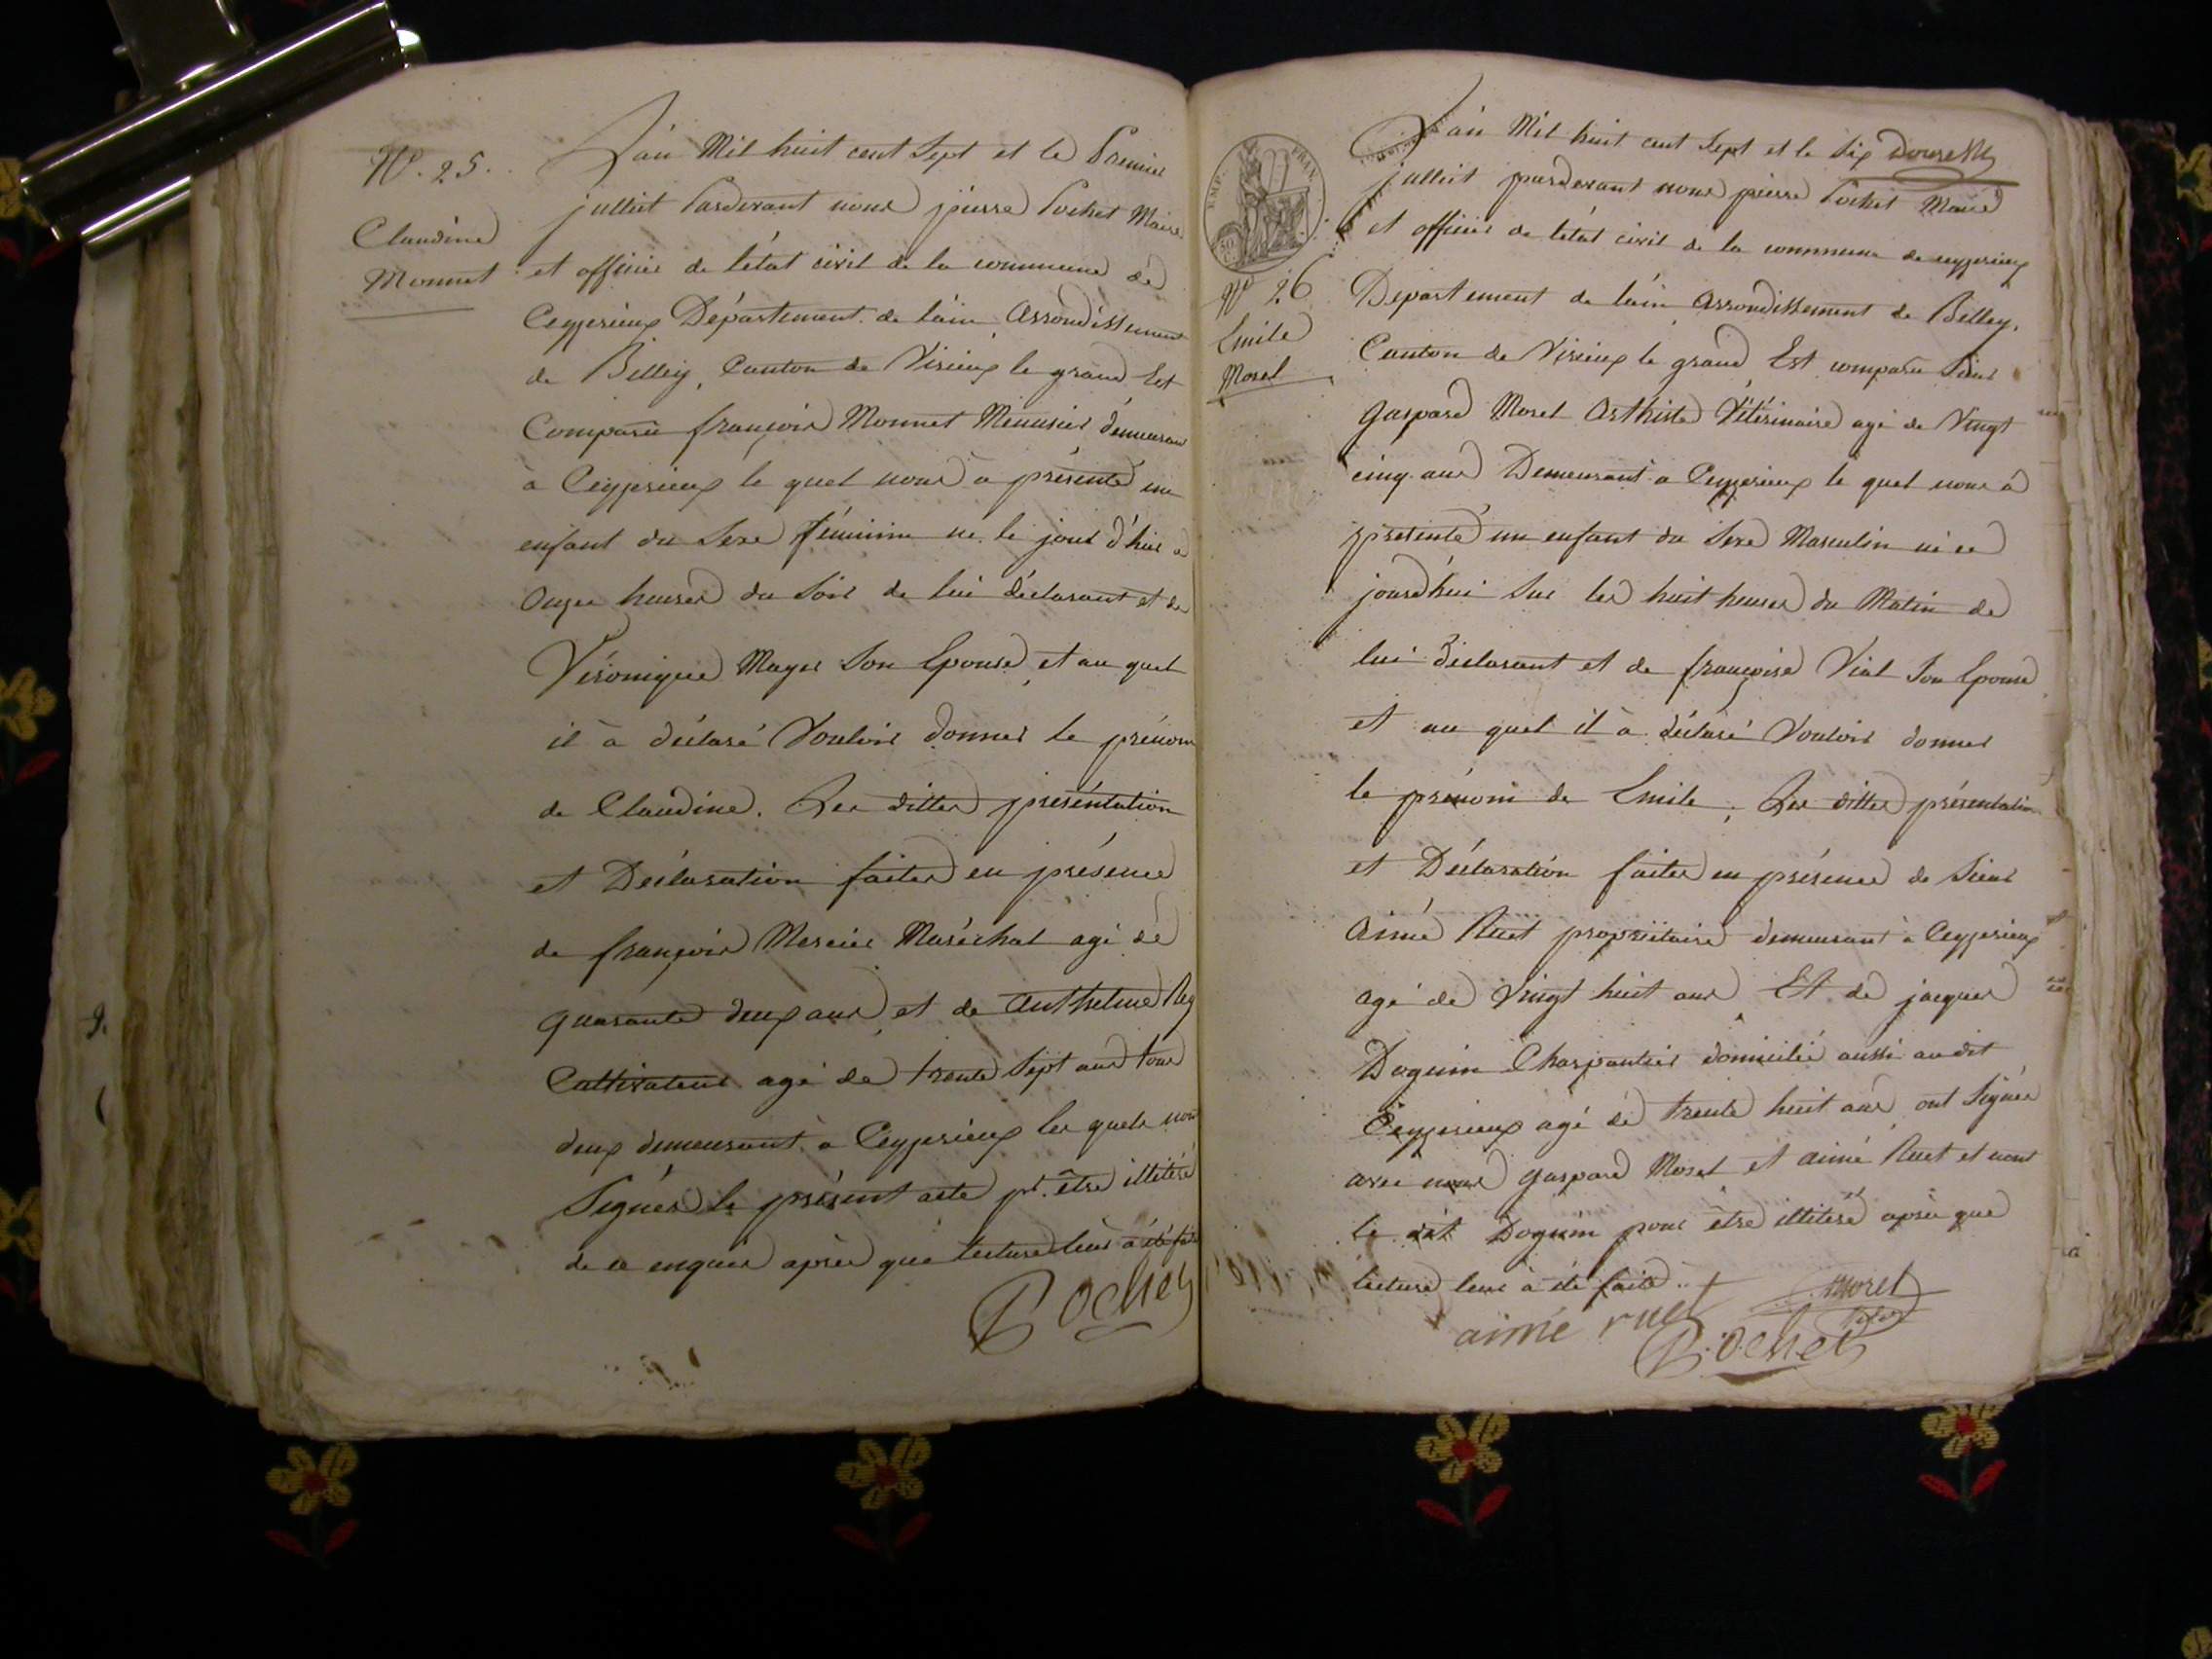 N.° 25.
Claudine
Monnet
L'an Mil huit cent Sept et le Premier
juillet Pardevant nous pierre Pochet Maire
et officier de l'état civil de la commune de
Ceyzerieux Département de l'ain Arrondissement
de Belley, Canton de Virieux le grand Est
Comparu françois Monnet Menuisier demeurant
à Ceyzerieux le quel nous à présenté un
enfant du Sexe féminin né le jour d'hier à
Onze heures du Soir de lui déclarant et de
Véronique Mayer Son Epouse, et au quel
il à déclaré Vouloir donner le prénom
de Claudine. Les dittes présentation
et Déclaration faites en présence
de françois Mercier Maréchal agé de
quarante deux ans, et de Anthelme Rey
Cultivateur agé de trente Sept ans tous
deux demeurant à Ceyzerieux les quels n'ont
Signés le présent acte pr. être illitéré
de ce enquis après que lecture leur à été faite
Pochet
EMP. FRAN.
N.° 26
Emile
Morel
L'an Mil huit cent Sept et le Six
juillet pardevant nous pierre Pochet Maire
et officier de l'état civil de la commune de ceyzerieux
Département de l'ain Arrondissement de Belley,
Canton de Virieux le grand Est comparu Sieur
gaspard Morel Arthiste Vétérinaire agé de Vingt
cinq ans Demeurant a Ceyzerieux le quel nous à
présenté un enfant du Sexe Masculin né ce
jourd'hui Sur les huit heures du Matin de
lui déclarant et de françoise Vial Son Epouse
et au quel il à déclaré Vouloir donner
le prénom de Emile, Les dittes présentation
et Déclaration faites en présence de Sieur
Aimé Ruet propriétaire demeurant à Ceyzerieux
agé de Vingt huit ans Et de jacques
Doguin Charpantier domicilié aussi audit
Ceyzerieux agé de trente huit ans, ont Signés
avec nous gaspard Morel et aimé Ruet et nont
le dit Doguin pour être illitéré après que
lecture leur à été faite
Morel
aimé ruet
Pochet